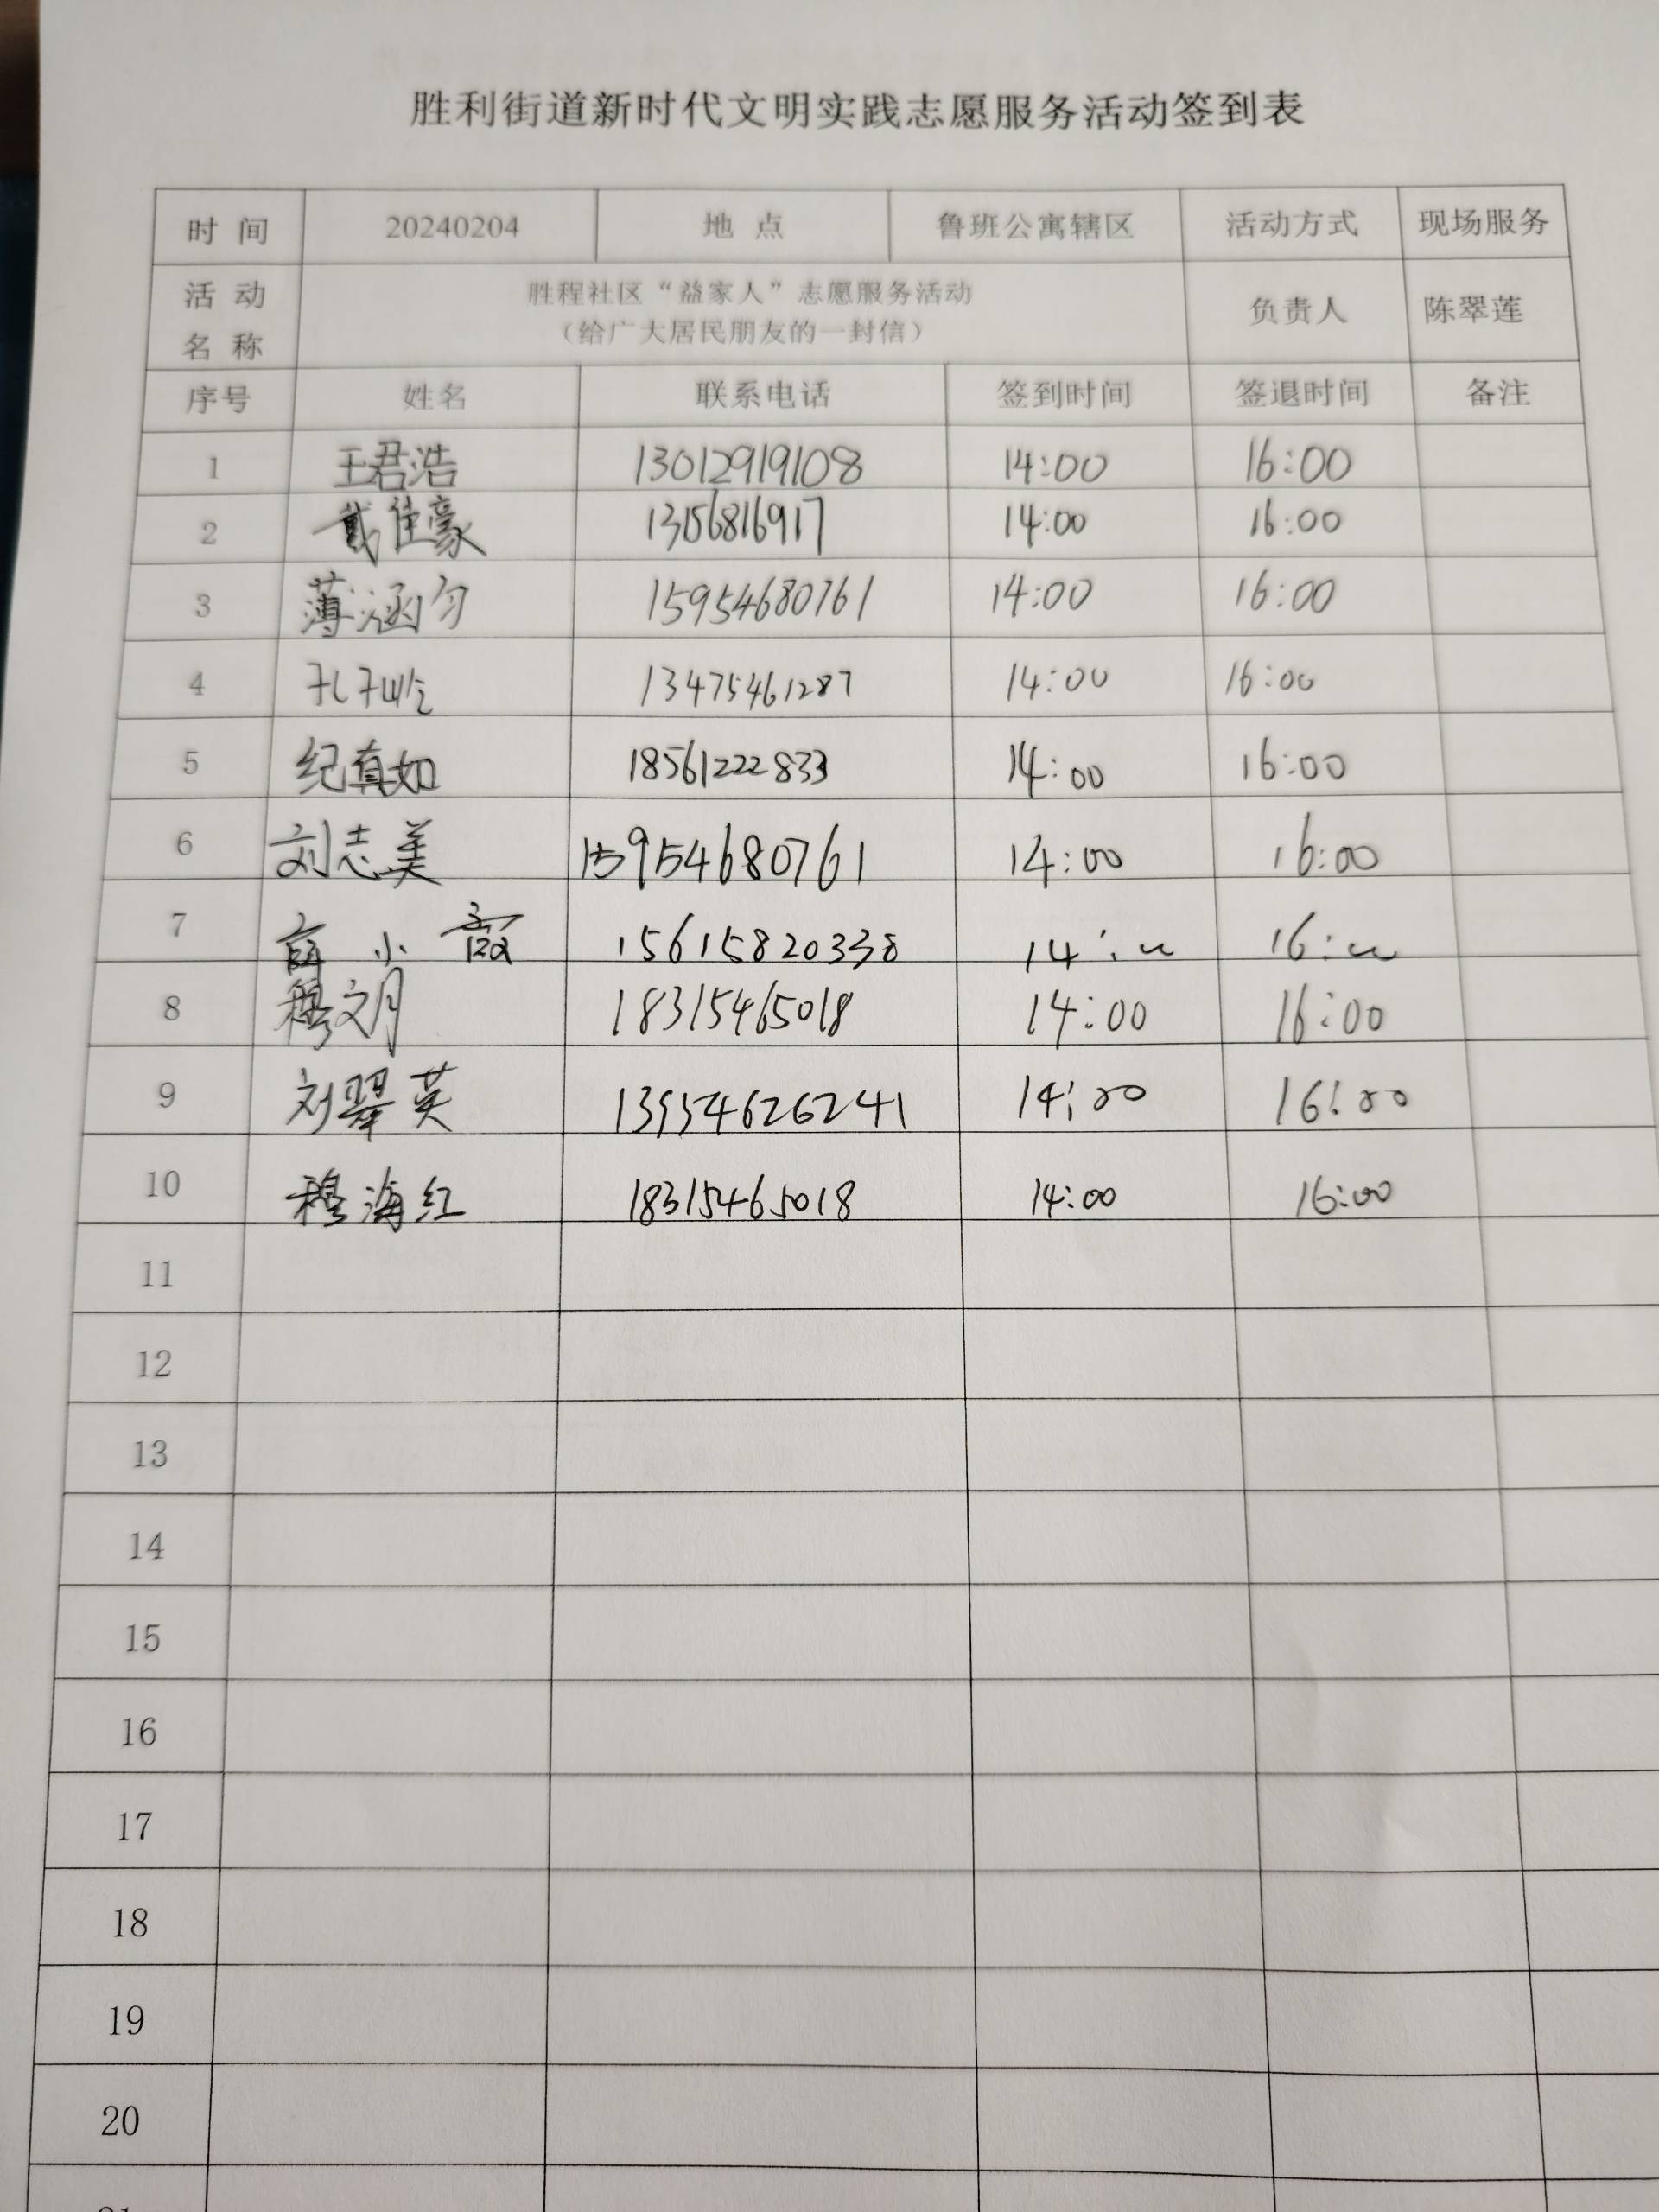 胜利街道新时代文明实践志愿服务活动签到表
时 间 20240204 地 点 鲁班公寓辖区 活动方式 现场服务
活 动 名 称 胜程社区“益家人”志愿服务活动 （给广大居民朋友的一封信） 负责人 陈翠莲
序号 姓名 联系电话 签到时间 签退时间 备注
1 王君浩 13012919108 14:00 16:00
2 戴佳豪 13156816917 14:00 16:00
3 薄涵匀 15954680761 14:00 16:00
4 13475461287 14:00 16:00
5 纪真如 18561222833 14:00 16:00
6 刘志美 15954680761 14:00 16:00
7 小霞 15615820338 14:00 16:00
8 穆文月 18315465018 14:00 16:00
9 刘翠英 13954626241 14:00 16:00
10 穆海红 18315465018 14:00 16:00
11
12
13
14
15
16
17
18
19
20